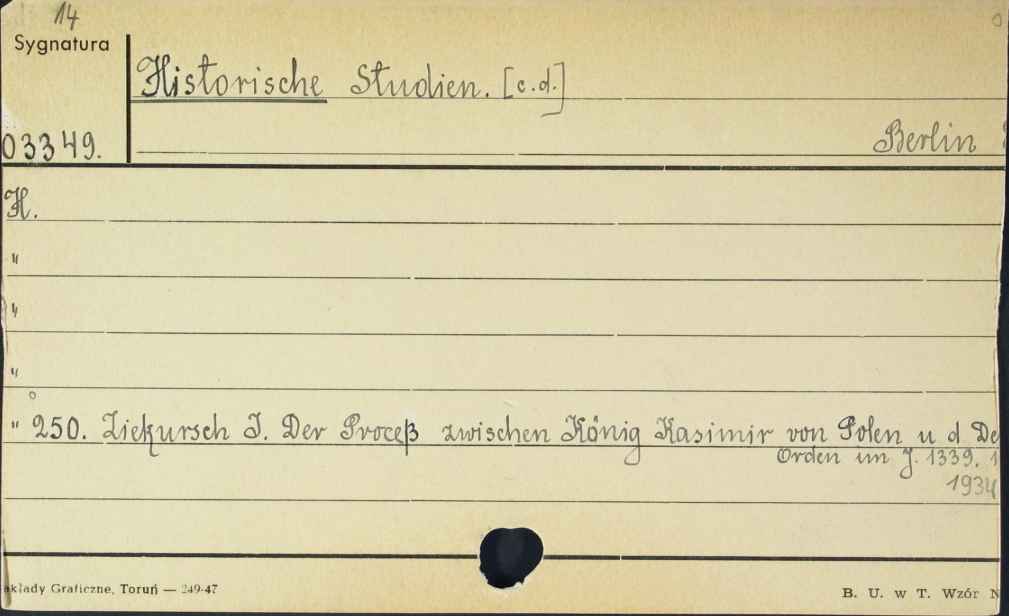 14
Sygnatura
Historische Studien. [c.d.]
03349.
Berlin
H.
"
"
"
" 250. Ziekursch I. Der Proceß zwischen König Kasimir von Polen u d De
Orden im J. 1339. 1
1934
akłady Graficzne, Toruń — 249-47
B. U. w T. Wzór N